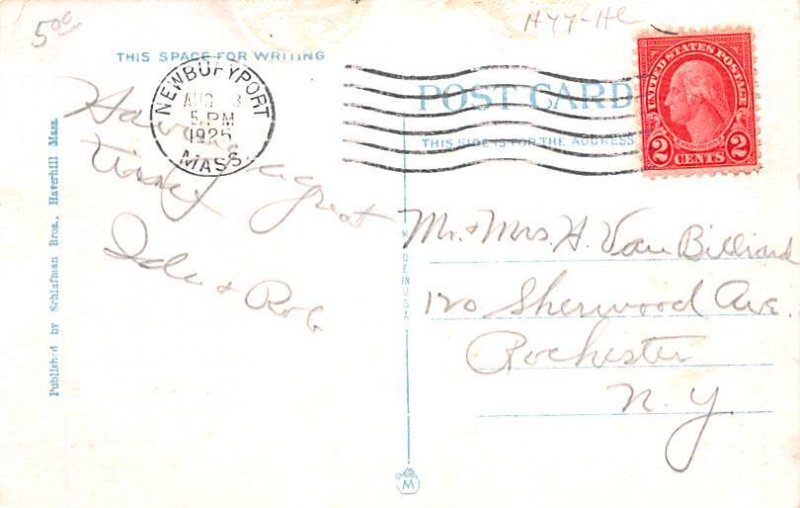 5 00
H44-HC
THIS SPACE FOR WRITING
POST CARD
THIS SIDE IS FOR THE ADDRESS
NEWBURYPORT
AUG 3
5 PM
1925
MASS.
UNITED STATES POSTAGE
2 CENTS 2
Having a great
time
Ide & Rob
Mr. & Mrs. H. Van Billiard
120 Sherwood Ave.
Rochester
N. Y
Published by Schlafman Bros., Haverhill Mass.
MADE IN U.S.A.
M